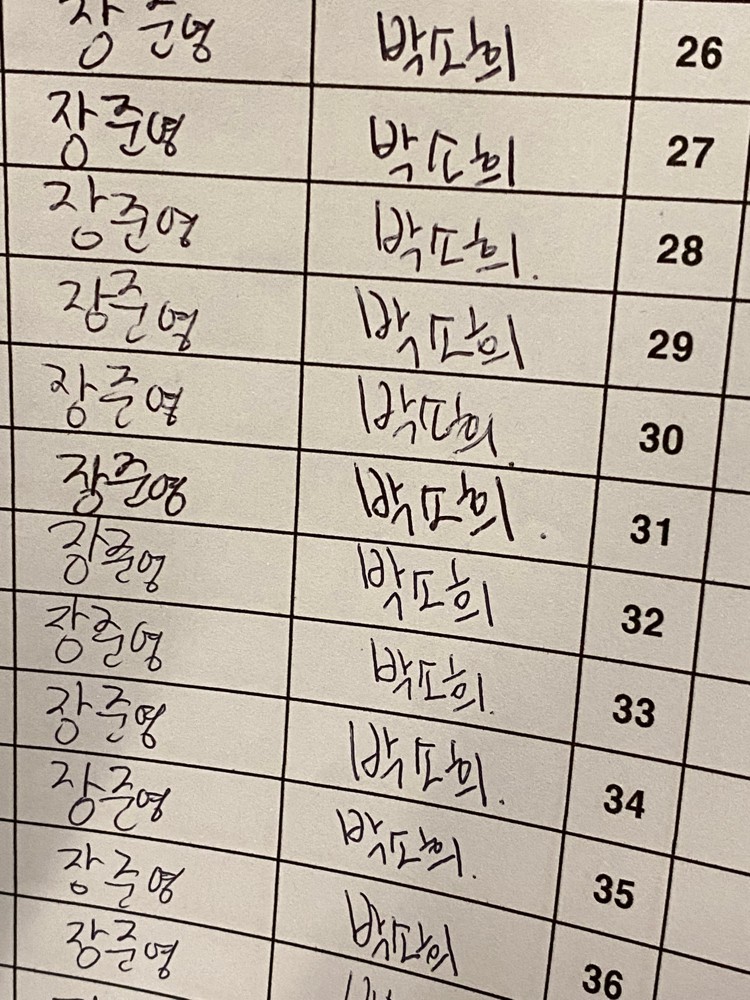 장준영 박소희 26
장준영 박소희 27
장준영 박소희. 28
장준영 박소희 29
장준영 박소희. 30
장준영 박소희. 31
장준영 박소희 32
장준영 박소희. 33
장준영 박소희. 34
장준영 박소희. 35
장준영 박소희 36
장준영